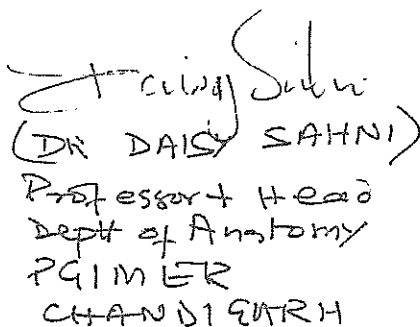 (DR DAISY SAHNI)
Professor + Head
Deptt of Anatomy
PGIMER
CHANDIGARH